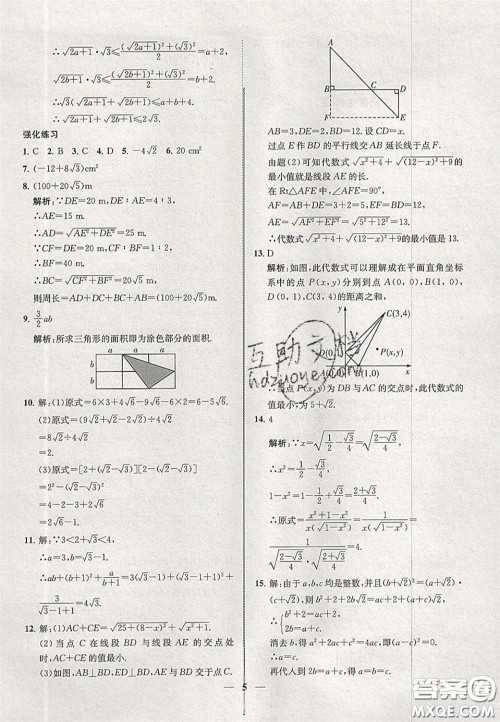 ∴√(2a+1)·√3≤((√(2a+1))²+(√3)²)/2=a+2,
√(2b+1)·√3≤((√(2b+1))²+(√3)²)/2=b+2.
∴√3(√(2a+1)+√(2b+1))≤a+b+4.
∴√(2a+1)+√(2b+1)≤2√3.
强化练习
1. C 2. B 3. C 4. D 5. -4√2 6. 20 cm²
7. (-12+8√3)cm²
8. (100+20√5)m
解析:∵DE=20 m,DE:AE=4:3,
∴AE=15 m.
∴AD=√(AE²+DE²)=25 m.
∵CF=DE=20 m,CF:BF=1:2,
∴BF=40 m.
∴BC=√(CF²+BF²)=20√5 m,
则周长=AD+DC+BC=(100+20√5)m.
9. 3/2 ab
解析:所求三角形的面积即为涂色部分的面积.
a a
b
b
10. 解:(1)原式=6×3+4√6-9√6-6×2=6-5√6.
(2)原式=(9√2+√2-2√2)÷4√2
=8√2÷4√2
=2.
(3)原式=[2+(√2-√3)][2-(√2-√3)]
=4-(√2-√3)²
=4-2-3+2√6
=2√6-1.
11. 解:∵3<2+√3<4,
∴a=3,b=√3-1.
∴ab+(b+1)²+
12. 解:(1)AC+CE=√(25+(8-x)²)+√(x²+1).
(2)当点 C 在线段 BD 与线段 AE 的交点处
时,AC+CE的值最小.
(3)如图,AB⊥BD,ED⊥BD,AE与BD交于点C.
A
B C D
F E
AB=3,DE=2,BD=12.设CD=x.
过点 E 作 BD 的平行线交 AB 延长线于点 F.
由题(2)可知代数式√(x²+4)+√((12-x)²+9)的
最小值就是线段 AE 的长.
在Rt△AFE 中,∠AFE=90°,
AF=AB+DE=3+2=5,EF=BD=12,
∴AE=√(AF²+EF²)=√(5²+12²)=13.
∴代数式√(x²+4)+√((12-x)²+9)的最小值是13.
13. D
解析:如图,此代数式可以理解成在平面直角坐标
系中的点 P(x,y)分别到点 A(0,0),B(1,0),
D(0,1),C(3,4)的距离之和,
y
C(3,4)
P(x,y)
B(1,0) x
当点 P(x,y)为 DB 与 AC 的交点时,此代数式的
值最小,为5+√2.
14. 4
15. 解:由于a,b,c均是整数,并且(b+√2)²=(a+√2)·
(c+√2),则b²+2+2√2b=ac+2+√2(a+c),
∴{b²+2=ac+2,
2b=a+c,
消去b,得a²+2ac+c²=4ac,即(a-c)²=0,∴a=c.
再代入到2b=a+c,得2b=2a,∴a=b.
5
互助文档
hdzuoye.com
答案圈
MXQE.COM